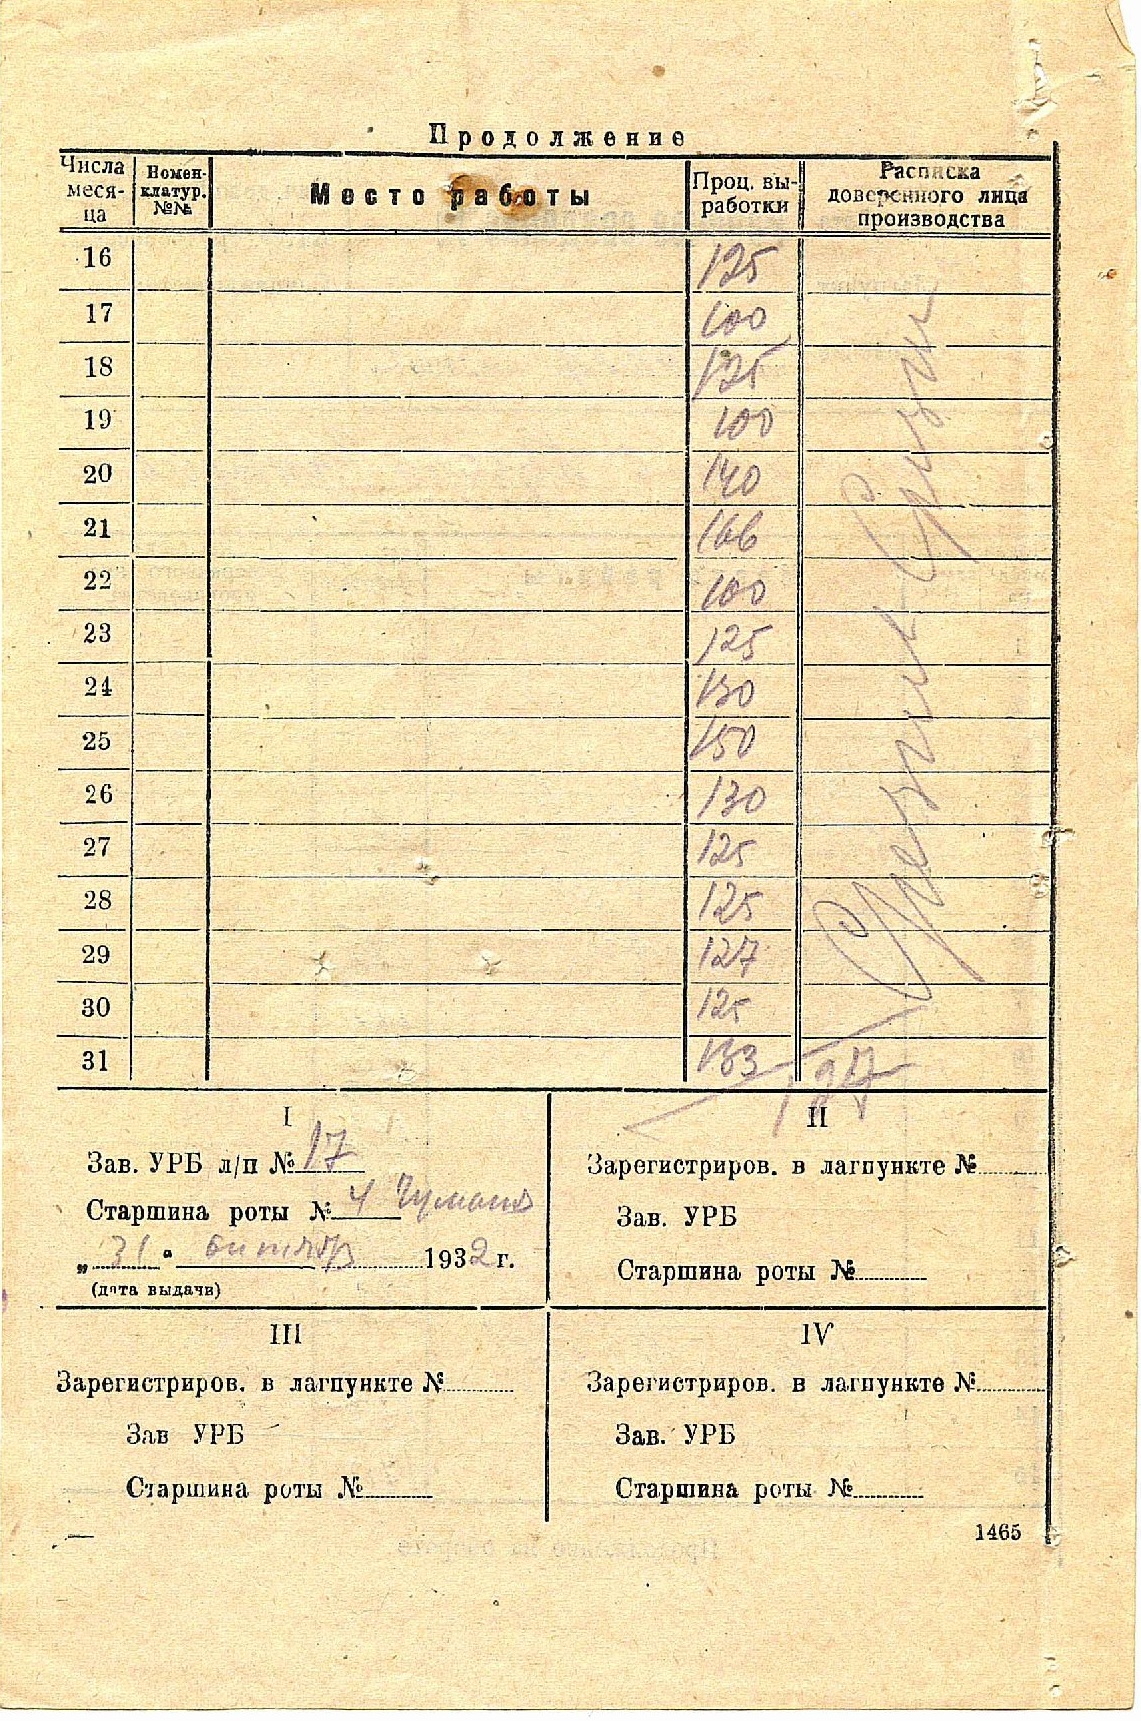 Продолжение
Числа месяца Номенклатур. №№ Место работы Проц. выработки Расписка доверенного лица производства
16 125
17 100
18 125
19 100
20 140
21 166
22 100
23 125
24 130
25 150
26 130
27 125
28 125
29 127
30 125
31 133
127
I
Зав. УРБ л/п № 17
Старшина роты № 4
„31“ октября 1932 г.
(дата выдачи)
II
Зарегистриров. в лагпункте №
Зав. УРБ
Старшина роты №
III
Зарегистриров. в лагпункте №
Зав УРБ
Старшина роты №
IV
Зарегистриров. в лагпункте №
Зав. УРБ
Старшина роты №
1465